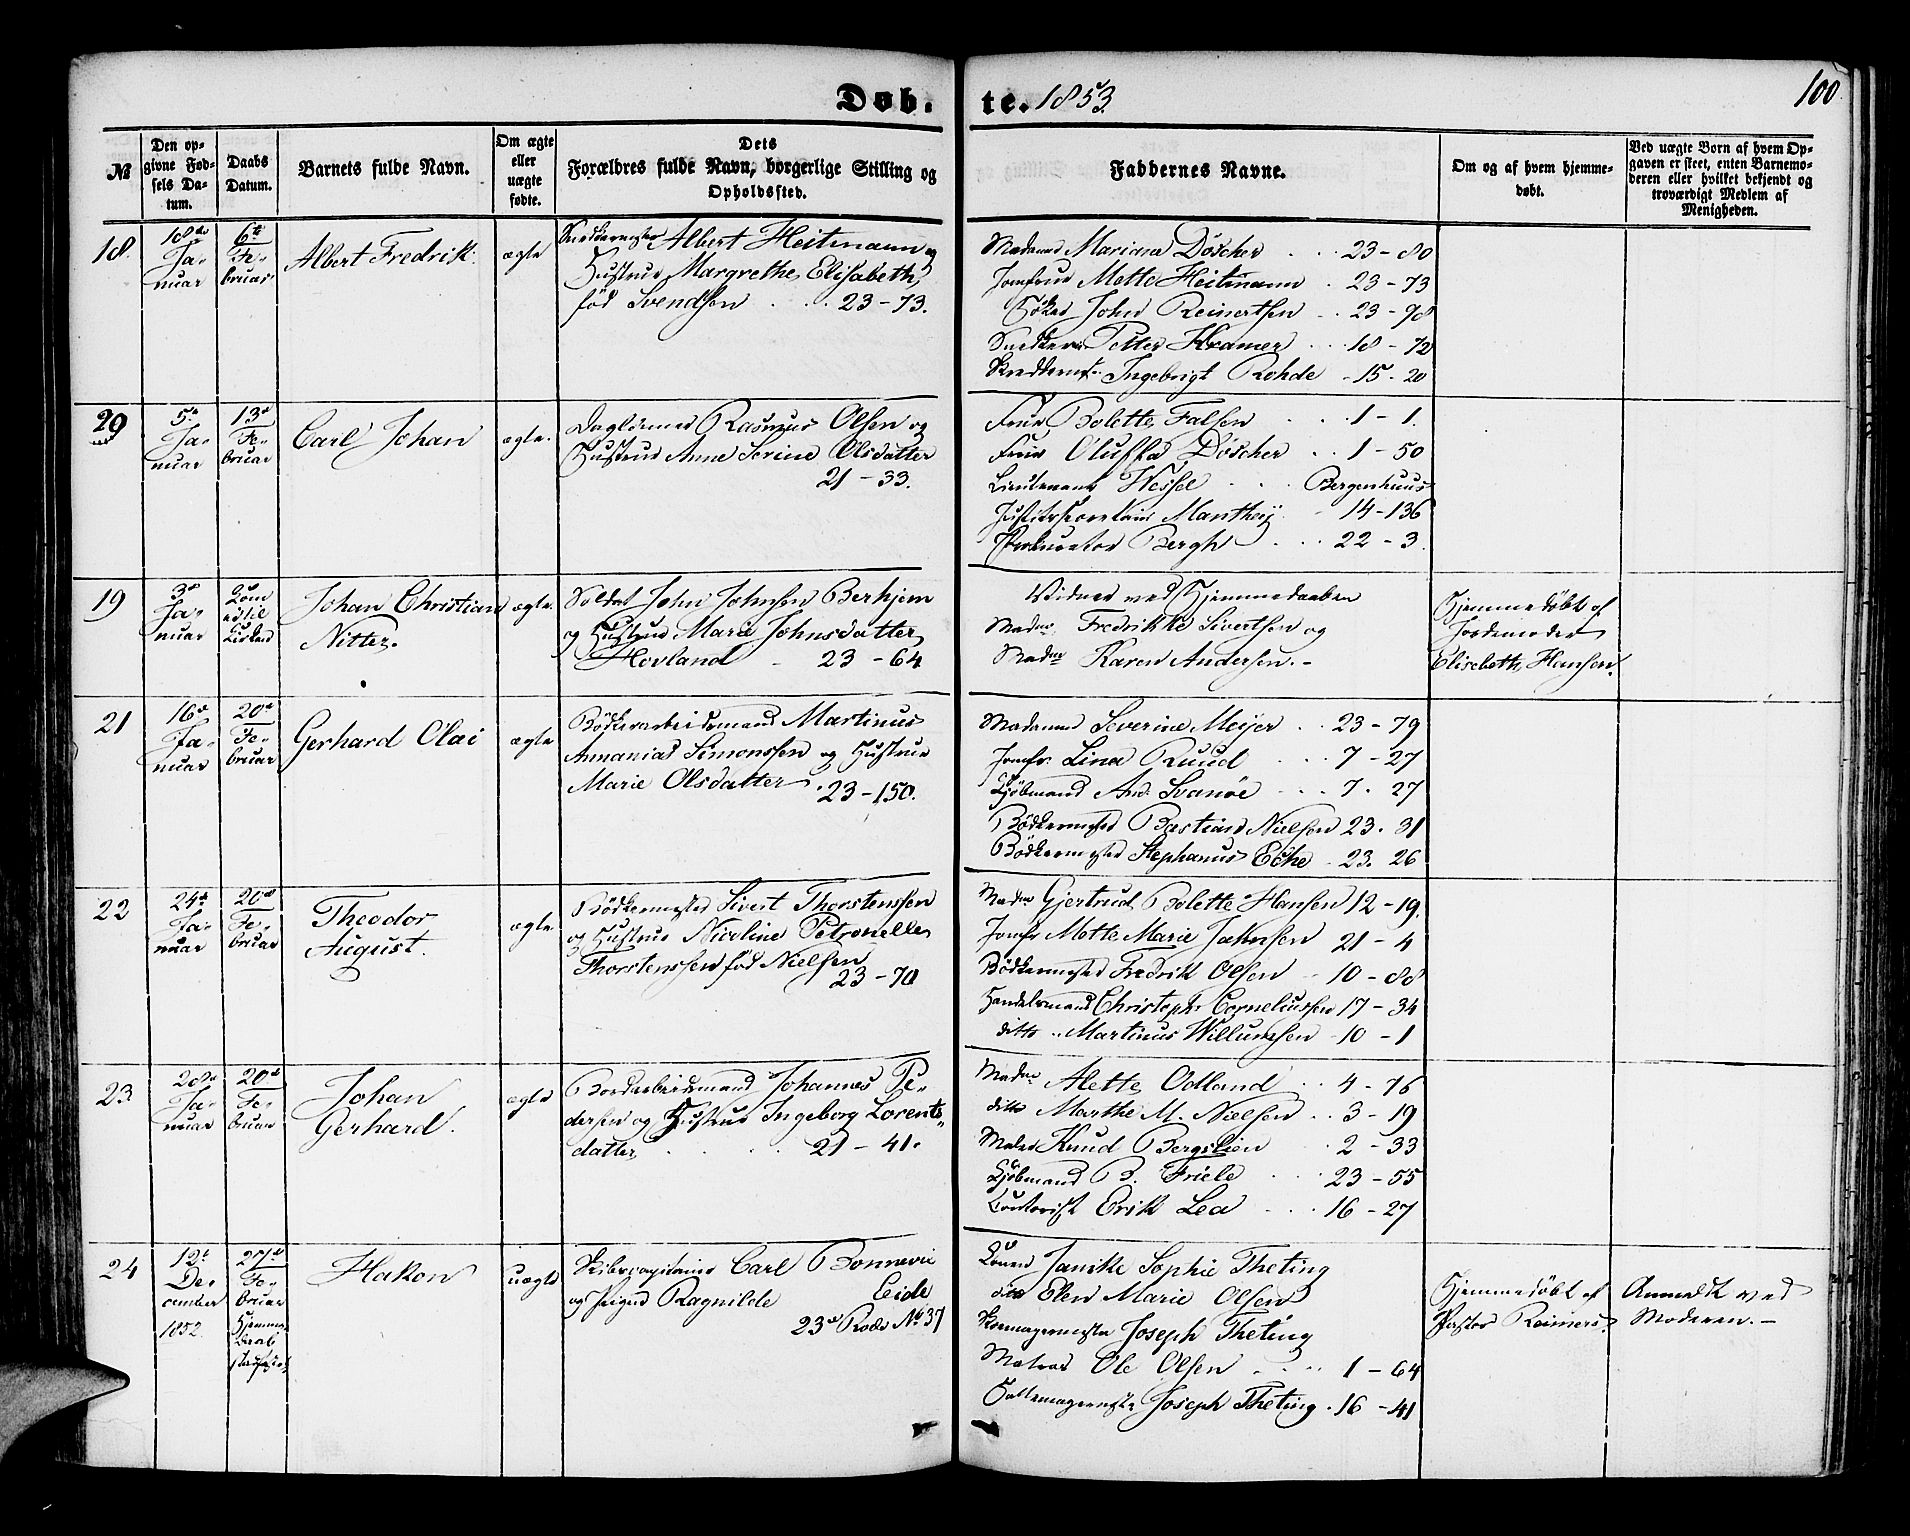 Døb-te. 1853
100
№
Den op-
givne Fød-
sels Da-
tum.
Daabs
Datum.
Barnets fulde Navn.
Om ægte
eller
uægte
fødte.
Dets
Forældres fulde Navn, borgerlige Stilling og
Opholdssted.
Faddernes Navne.
Om og af hvem hjemme-
døbt.
Ved uægte Børn af hvem Op-
gaven er skeet, enten Barnemo-
deren eller hvilket bekjendt og
troværdigt Medlem af
Menigheden.
18.
18de
Ja-
nuar
6te
Fe-
bruar
Albert Fredrik.
ægte
Snedkermester Albert Heitmann og
Hustrue Margrethe Elisabeth,
fød Svendsen . . . 23-73.
Madame Mariane Döscher . . . 23-80
Jomfrue Mette Heitmann . 23-73
Höker John Reinertsen . . 23-98
Snedker Petter Kramer . . . 18-72
Ingebrigt Rohde - 15-20
20
5te
Ja-
nuar
13de
Fe-
bruar
Carl Johan
ægte.
Daglönner Rasmus Olsen og
Hustrue Anne Serine Olsdatter
21-33.
Frue Bolette Falsen . . . . 1-1.
Frue Oluffa Döscher . . 1-50
Lieutenant Wessel . . . Bergenhuus
Justitssecretair Manthey . 14-136
Procurator Bergh . . . 22-3.
19
3de
Ja-
nuar
Johan Christian
Nitter.
ægte.
Soldat John Johnsen Berhjem
og Hustrue Marie Johnsdatter
Hovland - 23-64
Vidner ved Hjemmedaaben
Madme Fredrikke Sivertsen og
Madme Karen Andersen.-
Hjemmedöbt af
Jordemoder
Elisabeth Hansen.
21
16de
Ja-
nuar
20de
Fe-
bruar
Gerhard Olai
ægte
Bödkerarbeidsmand Martinus
Annanias Simonssen og Hustrue
Marie Olsdatter . 23-150.
Madame Severine Meijer . . 23-79
Jomfr. Lina Ruud . . . 7-27
Kjöbmand And. Svanöe - . . 7. 27
Bödkermester Bastian Nielsen 23. 31
Bödkermester Stephanus Ecke . 23. 26
22
24de
Ja-
nuar
20de
Fe-
bruar
Theodor
August.
ægte
Bödkermester Sivert Thorstensen
og Hustrue Nicoline Petronelle
Thorstenssen fød Nielsen
23-70
Madme Gjertrud Bolette Hansen 12-19.
Jomfr Mette Marie Jahnsen 21-4
Bödkermester Fredrik Olsen . . 10-88
Handelsmand Christoph Corneliussen 17-34
ditto . . Martinus Willumsen . 10-1
23
20de
Ja-
nuar
20de
Fe-
bruar
Johan
Gerhard.
ægte
Bordarbeidsmand Johannes Pe-
dersen og Hustrue Ingeborg Lorents-
datter . . . . . 21-41.
Madme Alette Odland . . 4-76
ditto Marthe M. Nielsen . . 3-19
Maler Knud Bergslien . 2-33
Kjöbmand B. Friele . . . 23-55
Contorist Erik Lea . . . 16-27
24
12te
De-
cember
1852.
27de
Fe-
bruar
Hakon
uægte
Skibscapitaine Carl Bonnevie
og Pigen Ragnilde Eide
23de Rode No 37
Janike Sophie Theting
ditto Elen Marie Olsen
Skomagermester Joseph Theting
Matros Ole Olsen . . . 1-64
Joseph Theting . 16-41
Hjemmedöbt af
Pastor Reimers.
Anmeldt ved
Moderen.-